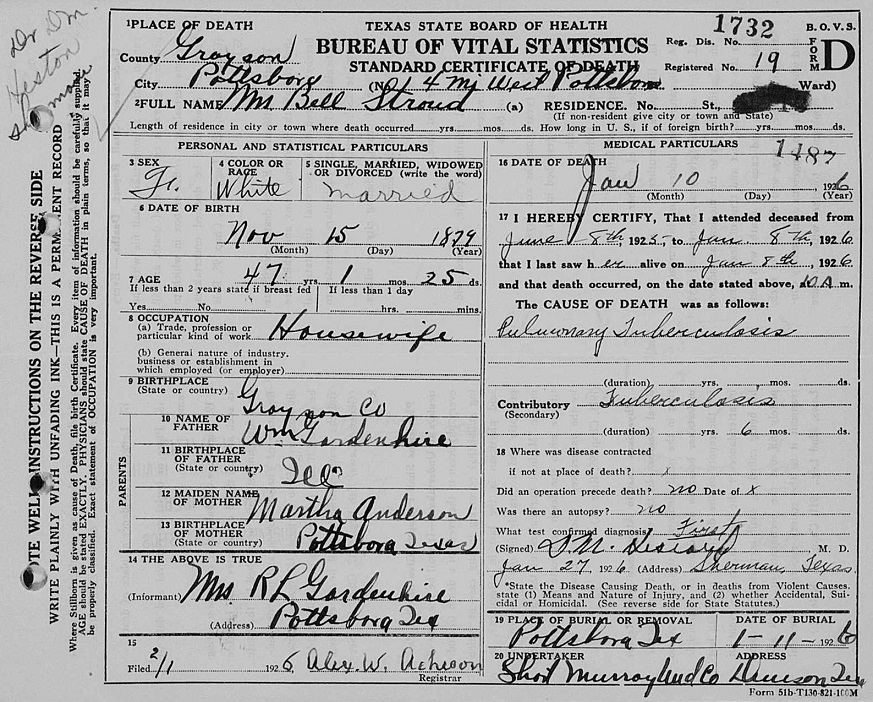 1732
B. O. V. S.
FORM D
1 PLACE OF DEATH
TEXAS STATE BOARD OF HEALTH
BUREAU OF VITAL STATISTICS
STANDARD CERTIFICATE OF DEATH
Reg. Dis. No.
Registered No. 19
County Grayson
City Pottsboro (No. 4 Mi West Pottsboro Ward)
2 FULL NAME Mrs Bell Stroud (a) RESIDENCE. No. St.,
(If non-resident give city or town and State)
Length of residence in city or town where death occurred yrs. mos. ds. How long in U. S., if of foreign birth? yrs. mos. ds.
PERSONAL AND STATISTICAL PARTICULARS
3 SEX
F.
4 COLOR OR RACE
White
5 SINGLE, MARRIED, WIDOWED OR DIVORCED (write the word)
married
6 DATE OF BIRTH
Nov 15 1879
(Month) (Day) (Year)
7 AGE 47 yrs. 1 mos. 25 ds.
If less than 2 years state if breast fed
If less than 1 day
Yes No hrs. mins.
8 OCCUPATION
(a) Trade, profession or
particular kind of work Housewife
(b) General nature of industry.
business or establishment in
which employed (or employer)
9 BIRTHPLACE
(State or country)
Grayson Co
PARENTS
10 NAME OF FATHER
Wm Gordenhire
11 BIRTHPLACE OF FATHER
(State or country)
Ill
12 MAIDEN NAME OF MOTHER
Martha Anderson
13 BIRTHPLACE OF MOTHER
(State or country)
Pottsboro Texas
14 THE ABOVE IS TRUE
(Informant) Mrs R L Gordenhire
(Address) Pottsboro Tex
15
Filed 2/1 1926, Alex. W. Acheson
Registrar
MEDICAL PARTICULARS
1487
16 DATE OF DEATH
Jan 10 1926
(Month) (Day) (Year)
17 I HEREBY CERTIFY, That I attended deceased from
June 8th, 1925, to Jan. 8th, 1926
that I last saw her alive on Jan 8th, 1926
and that death occurred, on the date stated above, 10 A m.
The CAUSE OF DEATH was as follows:
Pulmonary Tuberculosis
(duration) yrs. mos. ds.
Contributory Tuberculosis
(Secondary)
(duration) yrs. 6 mos. ds.
18 Where was disease contracted
if not at place of death? x
Did an operation precede death? no Date of x
Was there an autopsy? no
What test confirmed diagnosis? First
(Signed) M. D.
Jan 27, 1926 (Address) Sherman, Texas
*State the Disease Causing Death, or in deaths from Violent Causes.
state (1) Means and Nature of Injury, and (2) whether Accidental, Sui-
cidal or Homicidal. (See reverse side for State Statutes.)
19 PLACE OF BURIAL OR REMOVAL
Pottsboro Tex
DATE OF BURIAL
1-11-1926
20 UNDERTAKER
Short Murray Und Co
ADDRESS
Denison Tex
Form 51b-T130-821-100M
WRITE PLAINLY WITH UNFADING INK—THIS IS A PERM ENT RECORD
INSTRUCTIONS ON THE REVERSE SIDE
Where Stillborn is given as cause of Death, file birth Certificate. Every item of information should be carefully supplied.
AGE should be stated EXACTLY. PHYSICIANS should state CAUSE OF DEATH in plain terms, so that it may
be properly classified. Exact statement of OCCUPATION is very important.